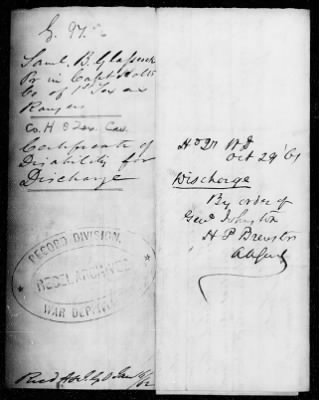 G. 97.
Saml. B. Glasscock
Pr in Capt Holts
Co of 1st Tex
Rangers
Co. H 8 Tex. Cav.
Certificate of
Disability for
Discharge
RECORD DIVISION.
REBEL ARCHIVES
WAR DEPARTMENT
Recd A & I. G O Jan
Hd Qr W D
Oct 29 '61
Discharge
By order of
Genl Johnston
H P Brewster
A A Genl